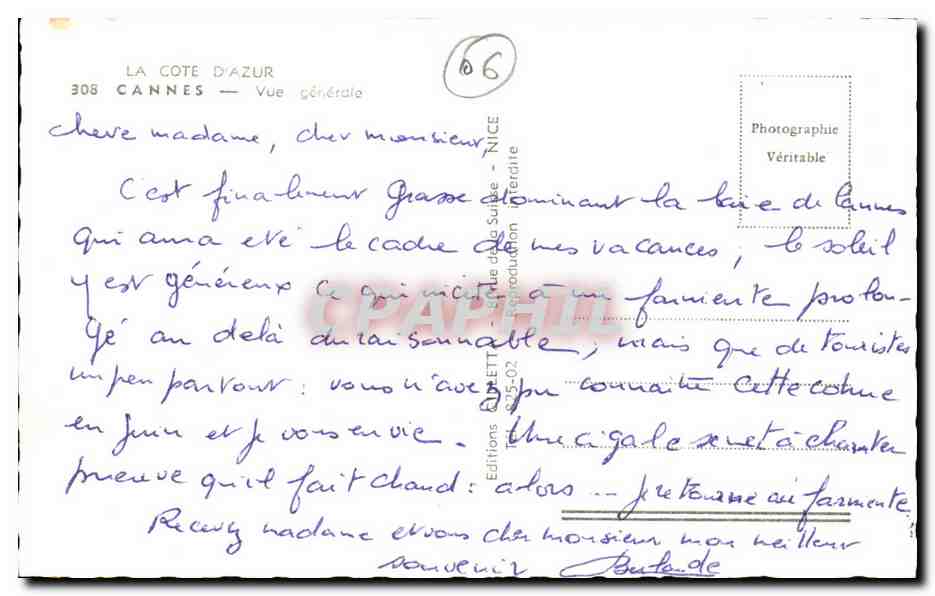 06
LA COTE D'AZUR
308 CANNES — Vue générale
Photographie
Véritable
chere madame, cher monsieur,
C'est finalement Grasse dominant la baie de Cannes
qui aura eté le cadre de mes vacances, le soleil
y est généreux ce qui incite à un farniente prolon-
gé au delà du raisonnable; mais que de touristes
un peu partout : vous n'avez pu connaitre cette cohue
en juin et je vous envie. Une cigale se met à chanter
preuve qu'il fait chaud : alors ... je retourne au farniente.
Recevez madame et vous cher monsieur mon meilleur
souvenir
Rue de la Suisse - NICE
Reproduction interdite
Editions
825-02
CPAPHIL